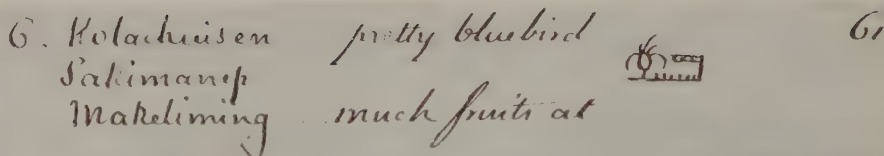 6. Kolachuisen pretty bluebird 61
Sakimanep
Makeliming much fruits at